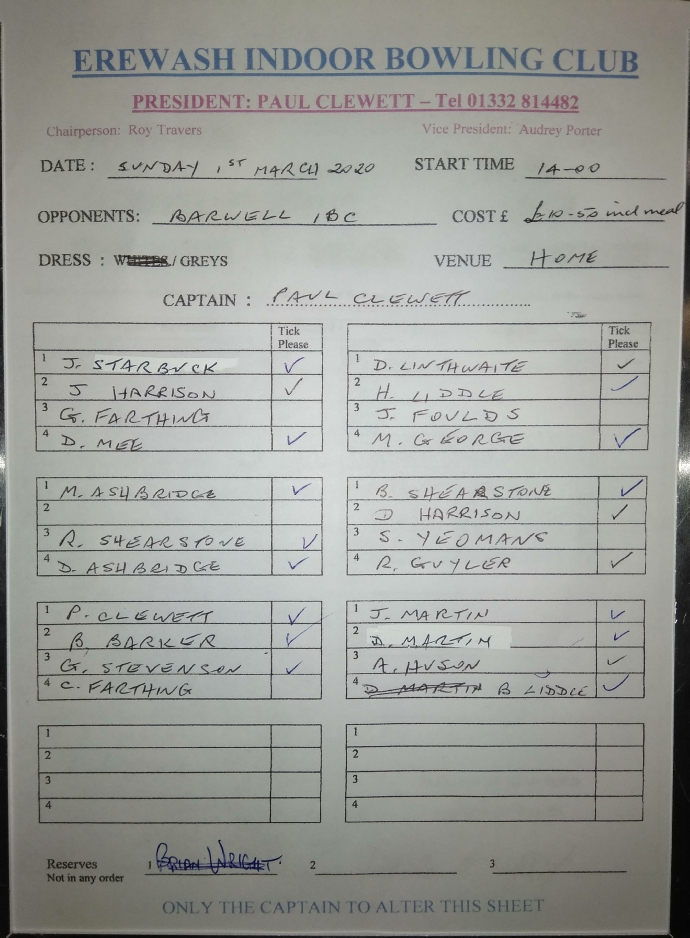 EREWASH INDOOR BOWLING CLUB
PRESIDENT: PAUL CLEWETT – Tel 01332 814482
Chairperson: Roy Travers Vice President: Audrey Porter
DATE : SUNDAY 1ST MARCH 2020 START TIME 14-00
OPPONENTS: BARWELL IBC COST £ £10-50 incl meal
DRESS : WHITES / GREYS VENUE HOME
CAPTAIN : PAUL CLEWETT
Tick Please
1 J. STARBUCK ✓
2 J HARRISON ✓
3 G. FARTHING
4 D. MEE ✓
Tick Please
1 D. LINTHWAITE ✓
2 H. LIDDLE ✓
3 J. FOULDS
4 M. GEORGE ✓
1 M. ASHBRIDGE ✓
2
3 R. SHEARSTONE ✓
4 D. ASHBRIDGE ✓
1 B. SHEARSTONE ✓
2 D HARRISON ✓
3 S. YEOMANS
4 R. GUYLER ✓
1 P. CLEWETT ✓
2 B. BARKER ✓
3 G. STEVENSON ✓
4 C. FARTHING
1 J. MARTIN ✓
2 D. MARTIN ✓
3 A. HUSON ✓
4 D MARTIN B LIDDLE ✓
1
2
3
4
1
2
3
4
Reserves 1 BRIAN WRIGHT. 2 3
Not in any order
ONLY THE CAPTAIN TO ALTER THIS SHEET